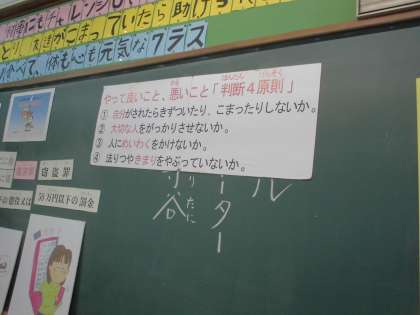 とり、友達がこまっていたら助けよ
食べて、体も心も元気なクラス
やって良いこと、悪いこと「判断4原則」
はんだん
げんそく
① 自分がされたらきずついたり、こまったりしないか。
② 大切な人をがっかりさせないか。
③ 人にめいわくをかけないか。
④ 法りつやきまりをやぶっていないか。
窃盗罪
50万円以下の罰金
ル
ーター
守谷
りたに